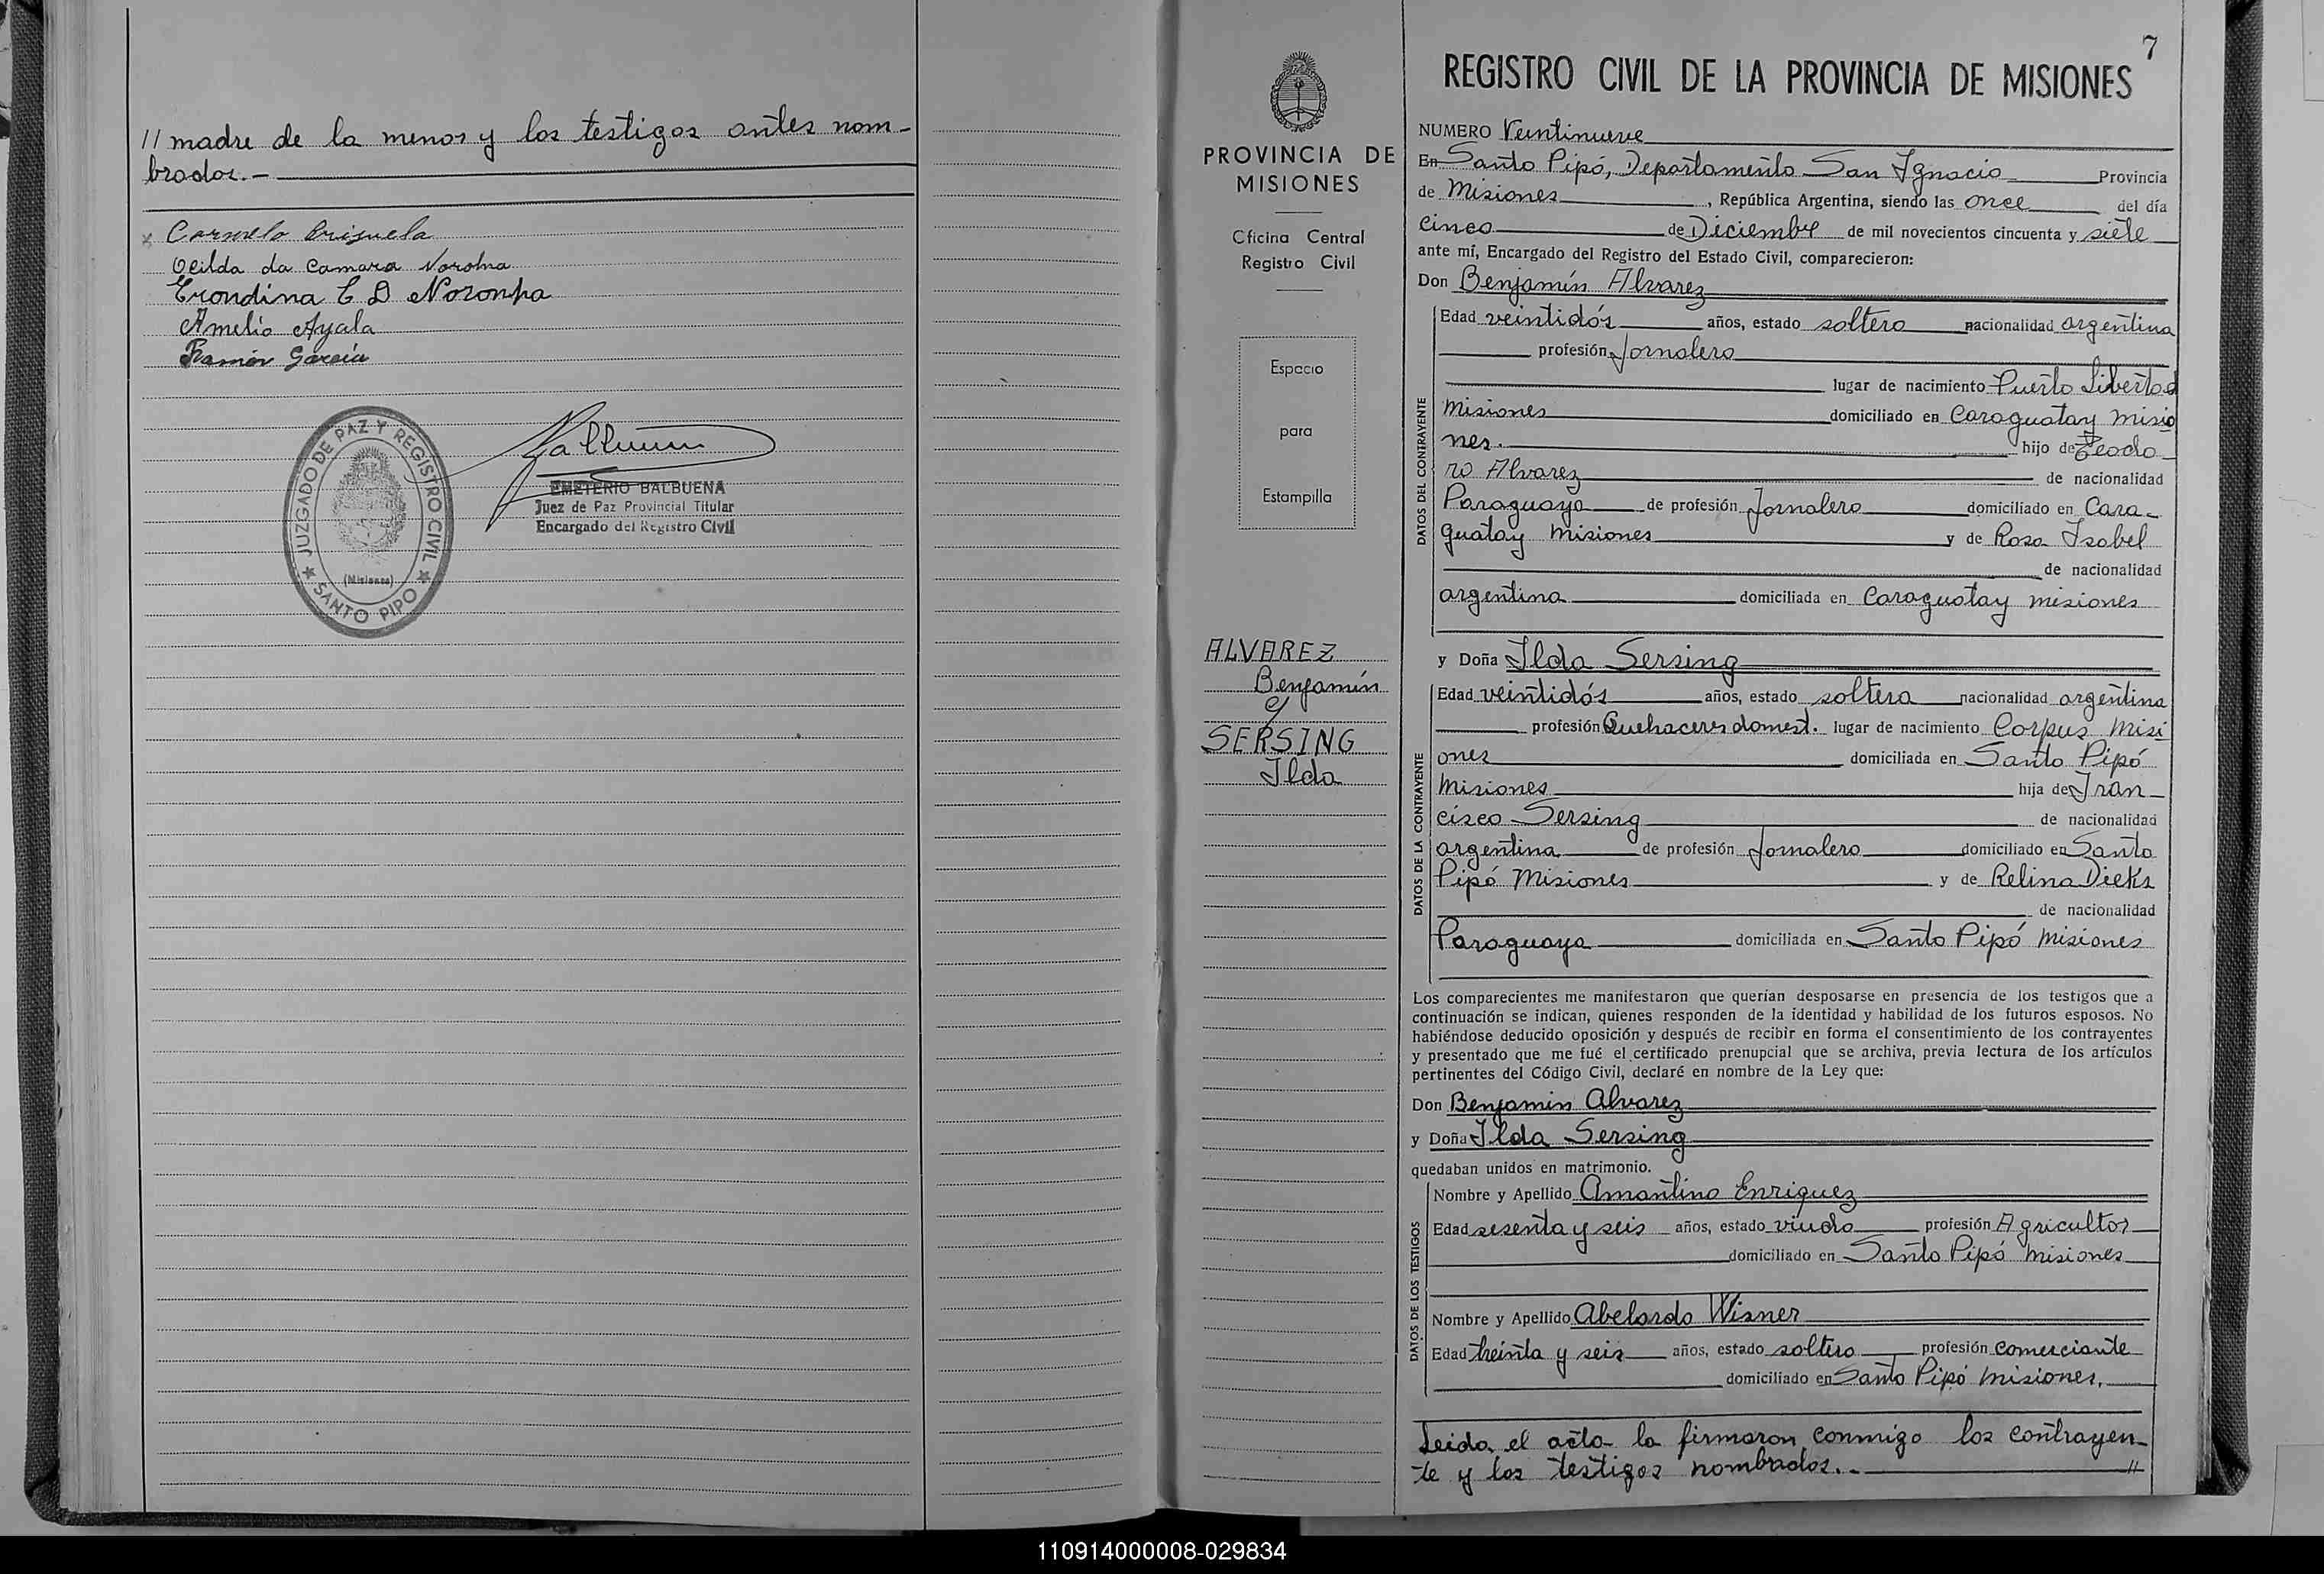 // madre de la menor y los testigos antes nom-
brados.-
x Carmelo Brisuela
Ocilda da Camara Noronha
Erondina C D Noronha
Amelio Ayala
Ramón García
JUZGADO DE PAZ Y REGISTRO CIVIL
(Misiones)
★ SANTO PIPO ★
EMETERIO BALBUENA
Juez de Paz Provincial Titular
Encargado del Registro Civil
PROVINCIA DE
MISIONES
Oficina Central
Registro Civil
Espacio
para
Estampilla
ALVAREZ
Benjamín
y
SERSING
Ilda
7
REGISTRO CIVIL DE LA PROVINCIA DE MISIONES
NUMERO Veintinueve
En Santo Pipó, Departamento San Ignacio Provincia
de Misiones, República Argentina, siendo las once del día
cinco de Diciembre de mil novecientos cincuenta y siete
ante mí, Encargado del Registro del Estado Civil, comparecieron:
Don Benjamín Alvarez
DATOS DEL CONTRAYENTE
Edad veintidós años, estado soltero nacionalidad argentina
profesión Jornalero
lugar de nacimiento Puerto Libertad
Misiones domiciliado en Caraguatay Misio
nes. hijo de Teodo
ro Alvarez de nacionalidad
Paraguaya de profesión Jornalero domiciliado en Cara-
guatay Misiones y de Rosa Isabel
de nacionalidad
argentina domiciliada en Caraguatay Misiones
y Doña Ilda Sersing
DATOS DE LA CONTRAYENTE
Edad veintidós años, estado soltera nacionalidad argentina
profesión Quehaceres domest. lugar de nacimiento Corpus Misi
ones domiciliada en Santo Pipó
Misiones hija de Fran
cisco Sersing de nacionalidad
argentina de profesión Jornalero domiciliado en Santo
Pipó Misiones y de Relina Dieks
de nacionalidad
Paraguaya domiciliada en Santo Pipó Misiones
Los comparecientes me manifestaron que querían desposarse en presencia de los testigos que a
continuación se indican, quienes responden de la identidad y habilidad de los futuros esposos. No
habiéndose deducido oposición y después de recibir en forma el consentimiento de los contrayentes
y presentado que me fué el certificado prenupcial que se archiva, previa lectura de los artículos
pertinentes del Código Civil, declaré en nombre de la Ley que:
Don Benjamin Alvarez
y Doña Ilda Sersing
quedaban unidos en matrimonio.
DATOS DE LOS TESTIGOS
Nombre y Apellido Amantino Enriquez
Edad sesenta y seis años, estado viudo profesión Agricultor
domiciliado en Santo Pipó Misiones
Nombre y Apellido Abelardo Wisner
Edad treinta y seis años, estado soltero profesión comerciante
domiciliado en Santo Pipó Misiones.
Leida el acta la firmaron conmigo los contrayen-
te y los testigos nombrados.- //
110914000008-029834